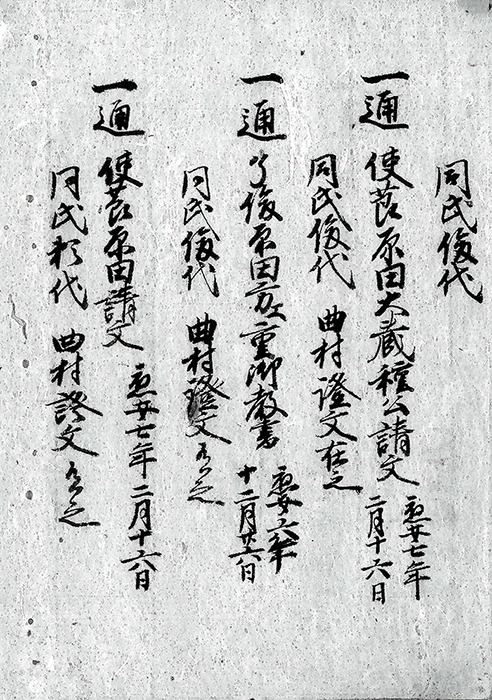 同氏後代
一通 使節原田大蔵種公請文 正安七年二月十六日
同氏後代 曲村證文在之
一通 原田 重御教書 正安六年十二月廿六日
同氏後代 曲村證文在之
一通 使節原田請文 正安七年二月十六日
同氏 代 曲村證文在之